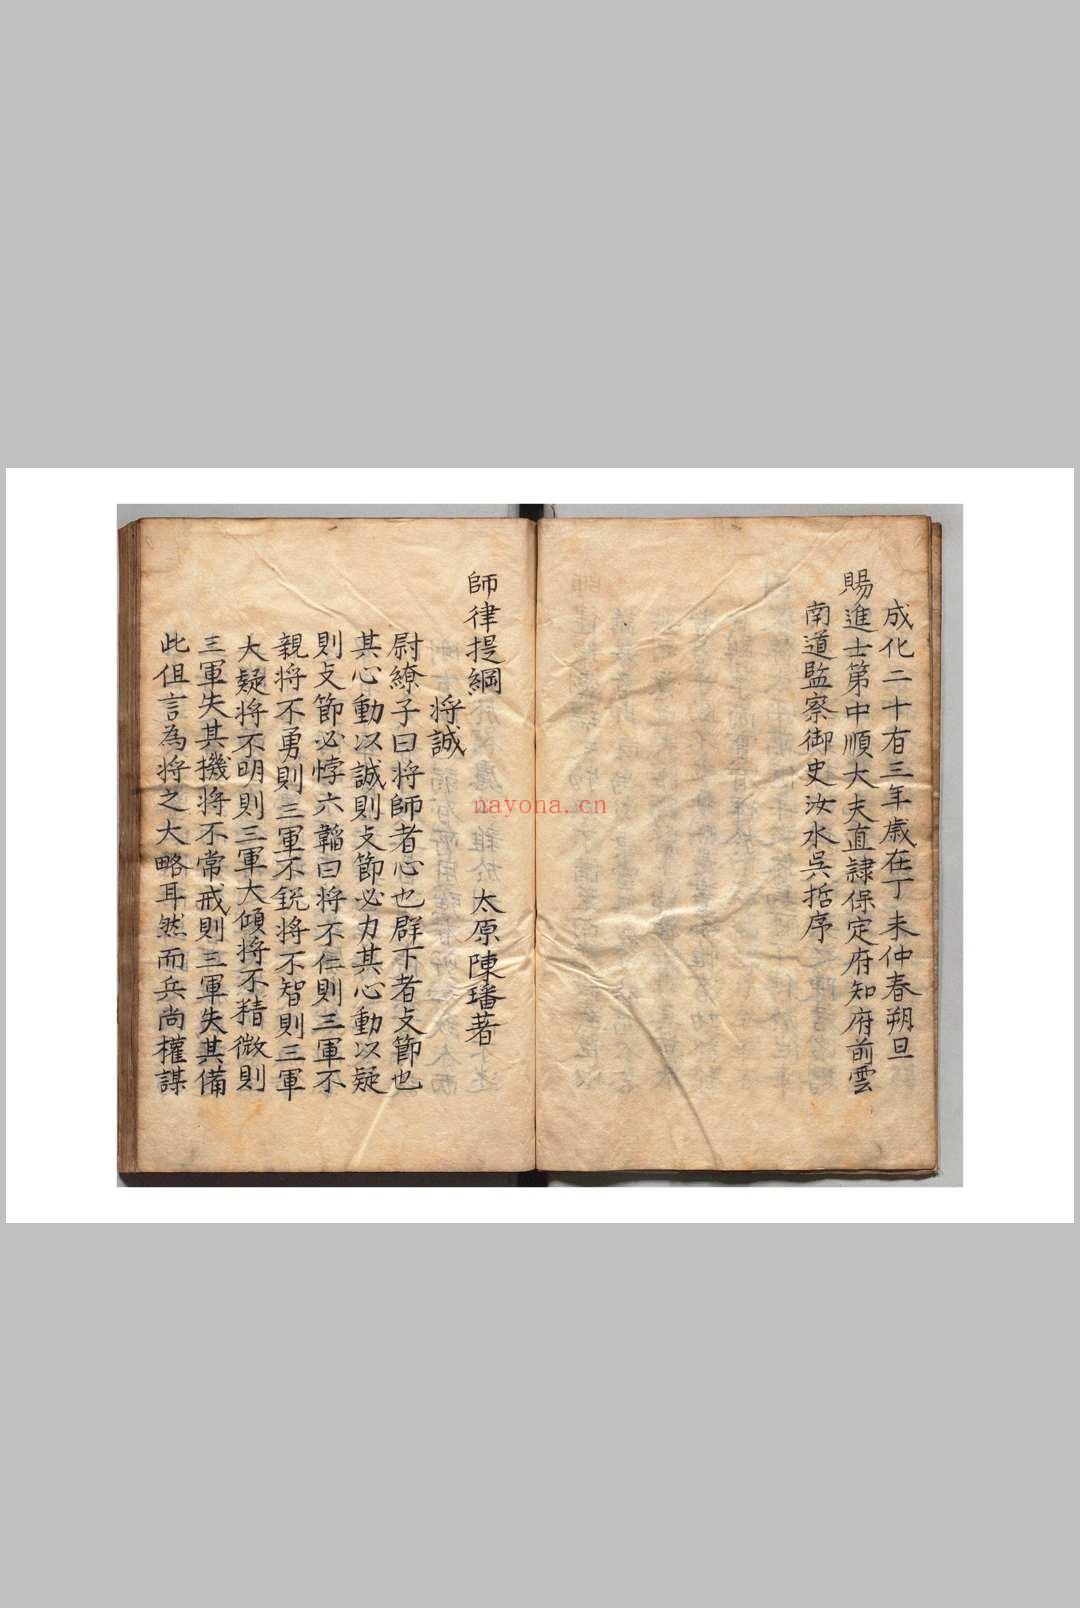 成化二十有三年歲在丁未仲春朔旦
賜進士第中順大夫直隷保定府知府前雲
南道監察御史汝水吳哲序
師律提綱 太原陳璠著
将誠
尉繚子曰将師者心也群下者支節也
其心動以誠則支節必力其心動以疑
則支節必悖六韜曰将不仁則三軍不
親将不勇則三軍不銳将不智則三軍
大疑将不明則三軍大傾将不精微則
三軍失其機将不常戒則三軍失其備
此但言為将之大略耳然而兵尚權謀
nayona.cn